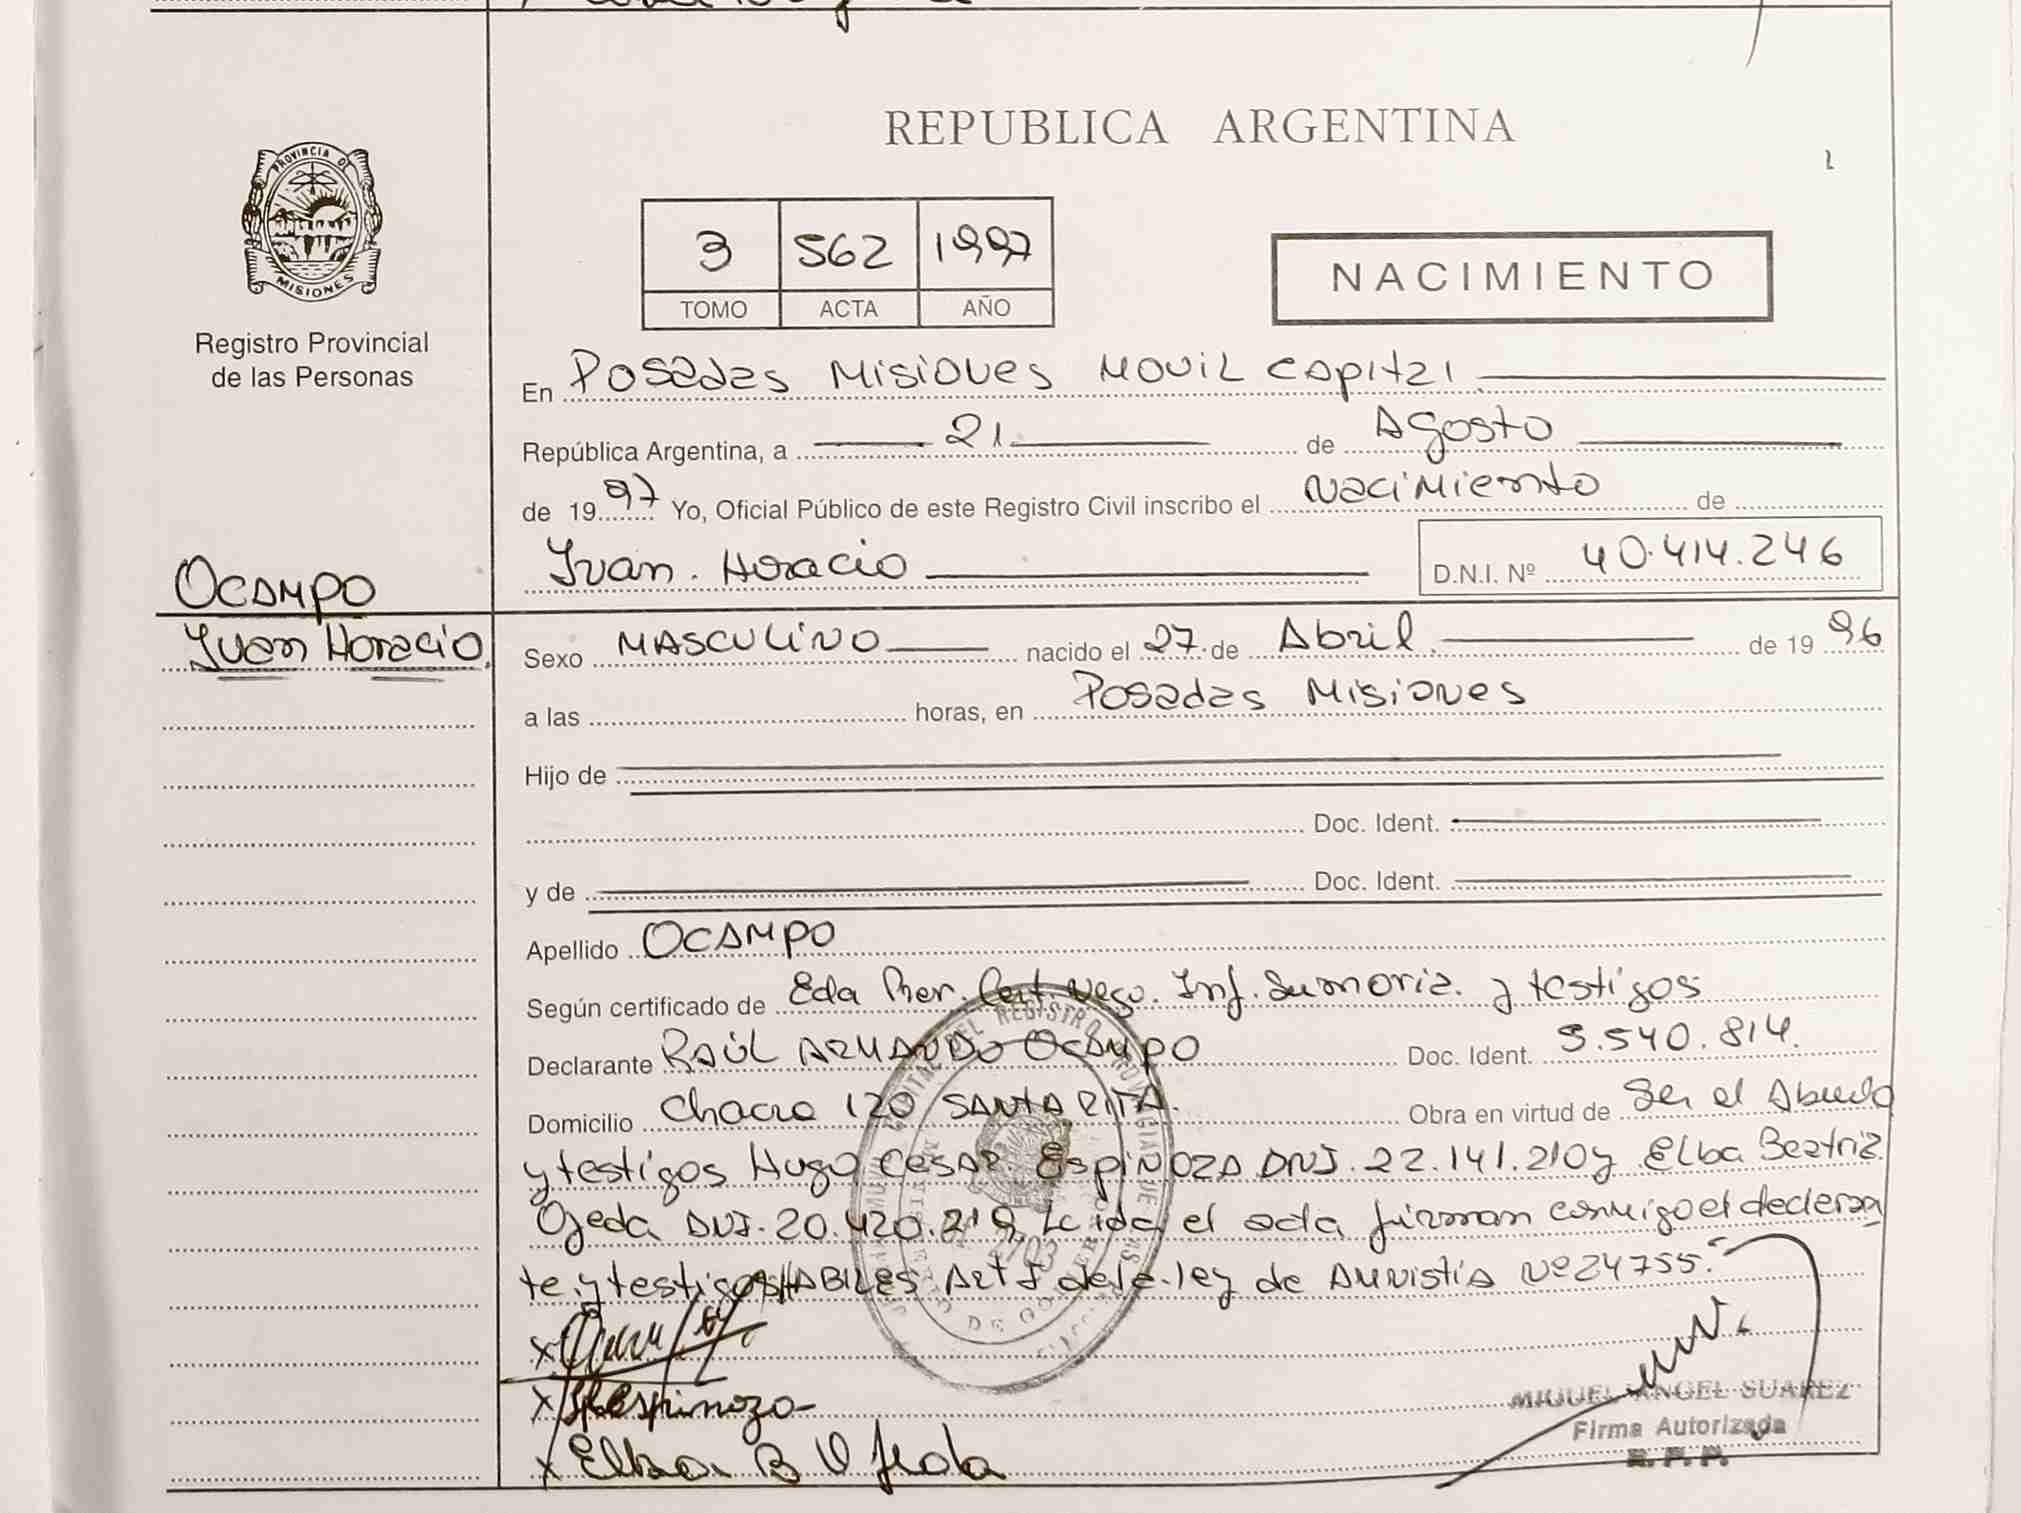 REPUBLICA ARGENTINA
PROVINCIA DE MISIONES
Registro Provincial
de las Personas
3 562 1997
TOMO ACTA AÑO
NACIMIENTO
En Posadas Misiones Movil Capital
República Argentina, a 21 de Agosto
de 1997 Yo, Oficial Público de este Registro Civil inscribo el Nacimiento de
Ivan. Horacio D.N.I. Nº 40.414.246
Ocampo
Ivan Horacio
Sexo MASCULINO nacido el 27 de Abril de 1996
a las horas, en Posadas Misiones
Hijo de
Doc. Ident.
y de Doc. Ident.
Apellido Ocampo
Según certificado de Eda Cert. Inf. Sumaria. y testigos
Declarante RAÚL ARMANDO OCAMPO Doc. Ident. 540.814.
Domicilio Chacra 120 SANTA RITA. Obra en virtud de Ser el Abuelo
y testigos Hugo Cesar Espinoza DNI. 22.141.210 y Elba Beatriz
Ojeda DNI. 20.420.219 Leida el acta firman conmigo el declaran
te y testigos HABILES Art de la ley de AMNISTIA Nº 24755.
x
x Espinoza
x Elba B Ojeda
MIGUEL ANGEL SUAREZ
Firma Autorizada
R. P. P.